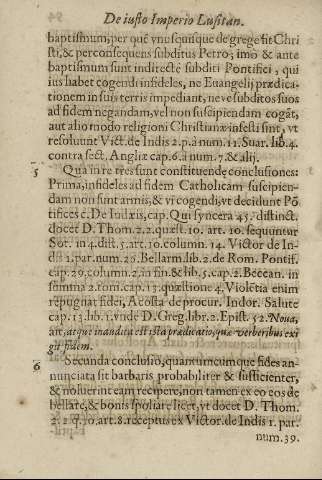 De iusto Imperio Lusitan.
baptismum, per quē vnusquisque de grege fit Chri
sti, & per consequens subditus Petro; imò & ante
baptismum sunt indirectè subditi Pontifici, qui
ius habet cogendi infideles, ne Euangelij prædica-
tionem in suis terris impediant, neve subditos suos
ad fidem negandam, vel non suscipiendam cogāt,
aut alio modo religioni Christianæ infesti sint, vt
resoluunt Vict. de Indis 2. p. à num. 11. Suar. lib. 4.
contra sect. Angliæ cap. 6. à num. 7. & alij.
5 Qua in re tres sunt constituendę conclusiones:
Prima, infideles ad fidem Catholicam suscipien-
dam non sunt armis, & vi cogendi, vt decidunt Pō
tifices c. De Iudæis, cap. Qui syncera 45. distinct.
docet D. Thom. 2. 2. quæst. 10. art. 10. sequuntur
Sot. in 4. dist. 5. art. 10. column. 14. Victor de In-
dis 1. par. num. 26. Bellarm. lib. 2. de Rom. Pontif.
cap. 29. column. 2. in fin. & lib. 5. cap. 2. Beccan. in
summa 2. tom. cap. 13. quæstione 4. Violētia enim
repugnat fidei, Acosta de procur. Indor. Salute
cap. 13. lib. 1. vnde D. Greg. libr. 2. Epist. 52. Noua,
ait, atque inaudita est ista prædicatio, quæ verberibus exi
git fidem.
6 Secunda conclusio, quantumcumque fides an-
nunciata sit barbaris probabiliter & sufficienter,
& noluerint eam recipere, non tamen ex eo eos de
bellare, & bonis spoliare licet, vt docet D. Thom.
2. 2. q. 10. art. 8. receptus ex Victor. de Indis 1. par.
num. 39.